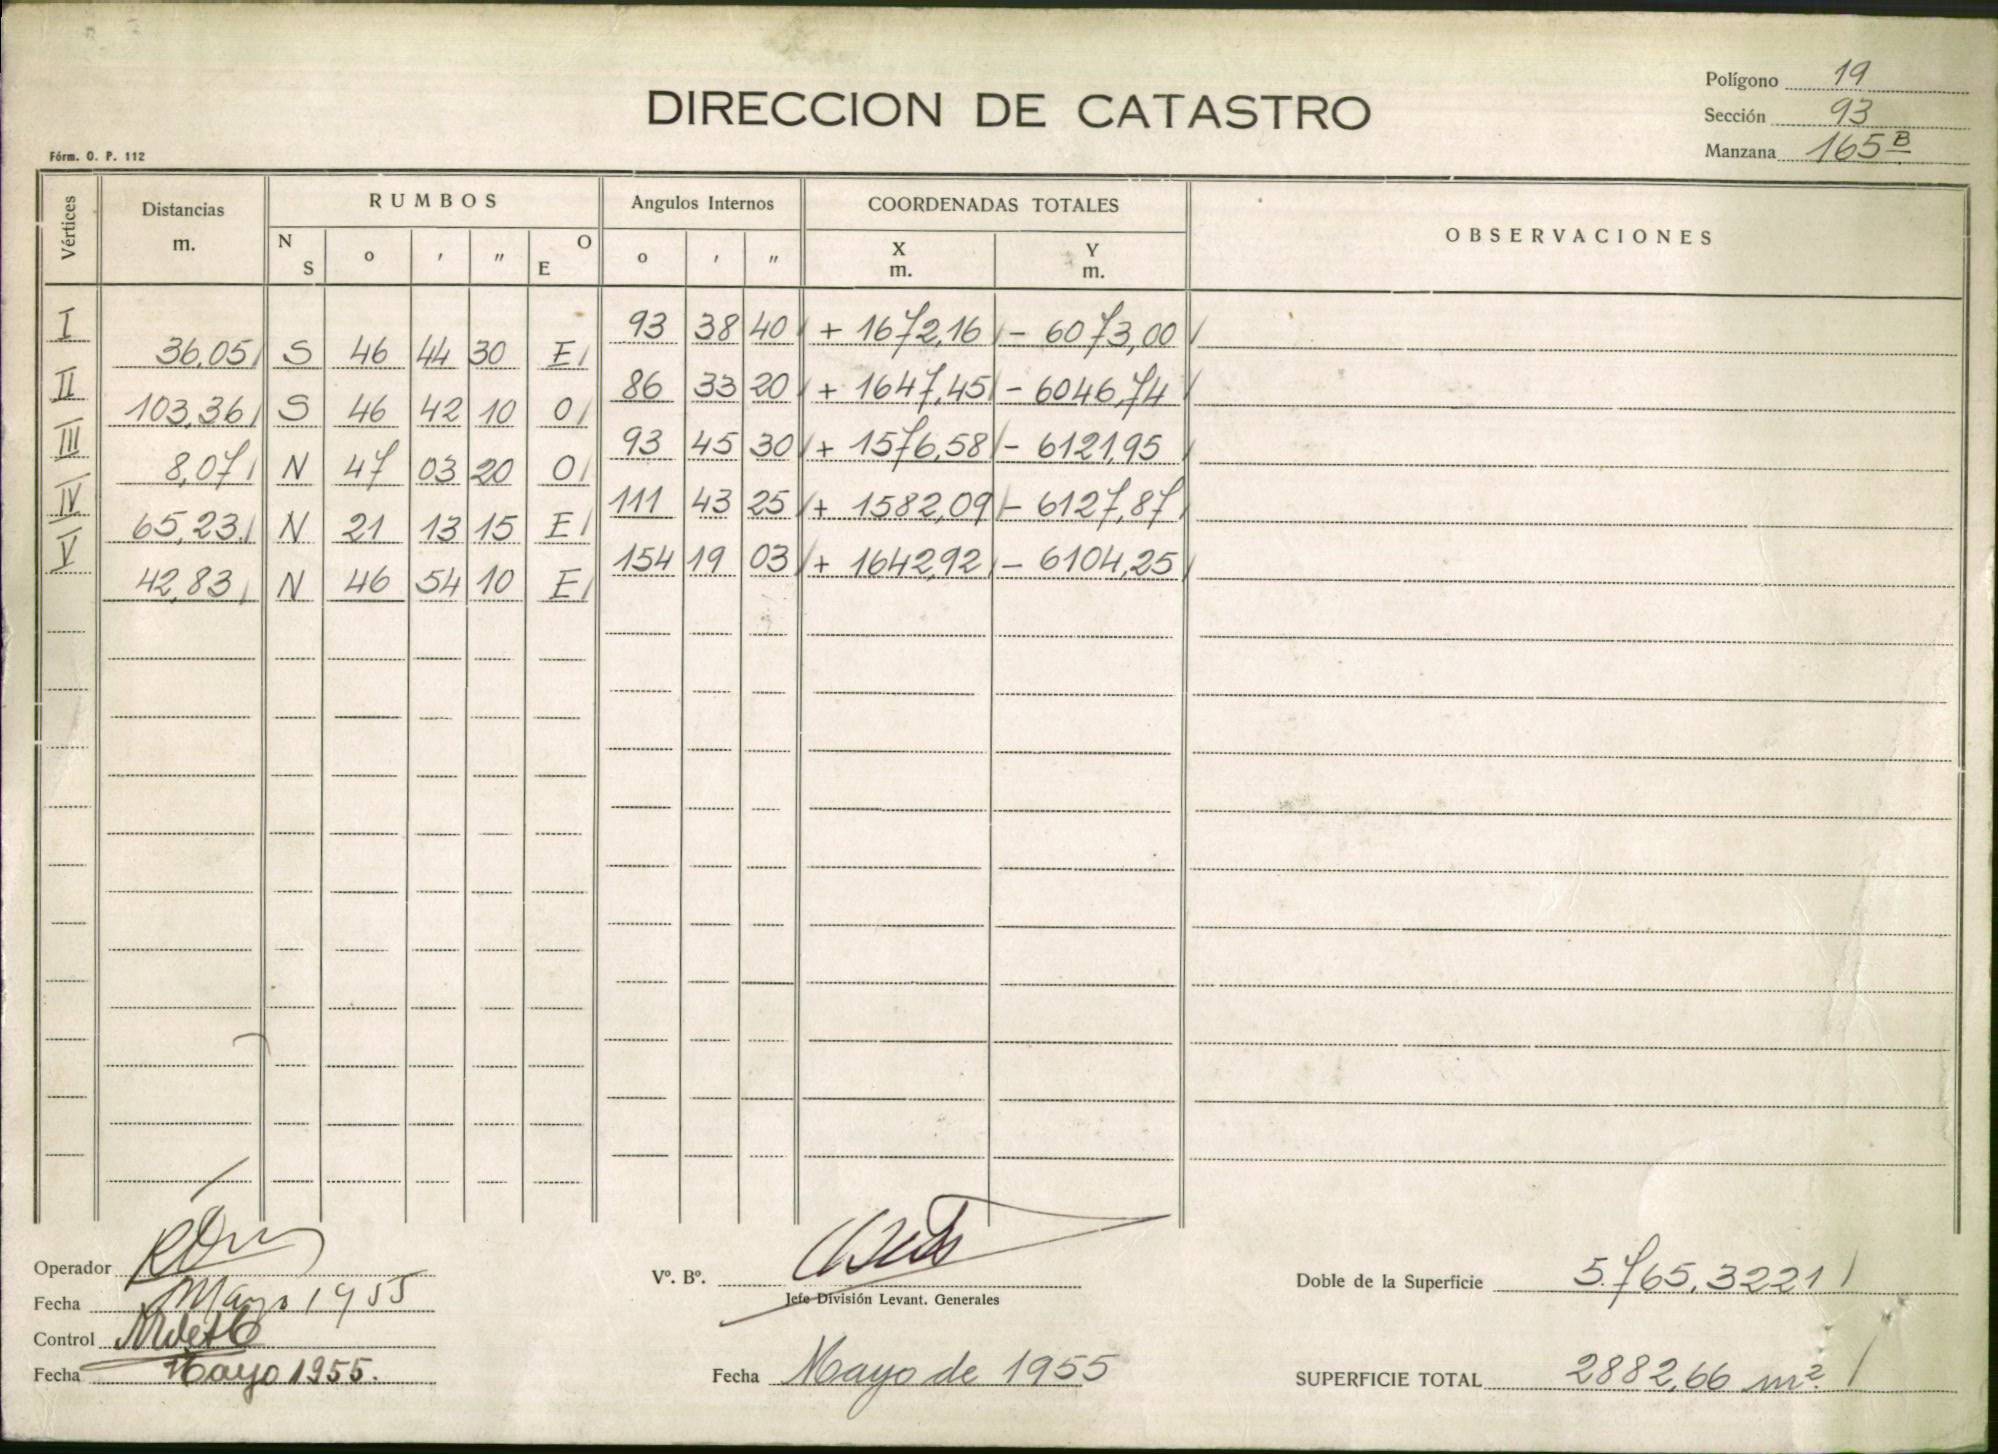 Polígono 19
DIRECCION DE CATASTRO
Sección 93
Fórm. O. P. 112
Manzana 165 B
Vértices Distancias m. RUMBOS Angulos Internos COORDENADAS TOTALES OBSERVACIONES
N S ° ' " O E ° ' " X m. Y m.
I 93 38 40 + 1672,16 - 6073,00
36,05 S 46 44 30 E
II 86 33 20 + 1647,45 - 6046,74
103,36 S 46 42 10 O
III 93 45 30 + 1576,58 - 6121,95
8,07 N 47 03 20 O
IV 111 43 25 + 1582,09 - 6127,87
65,23 N 21 13 15 E
V 154 19 03 + 1642,92 - 6104,25
42,83 N 46 54 10 E
Operador
Vº. Bº.
Doble de la Superficie 5.765,3221
Fecha Mayo 1955
Jefe División Levant. Generales
Control
Fecha Mayo 1955.
Fecha Mayo de 1955
SUPERFICIE TOTAL 2882,66 m².